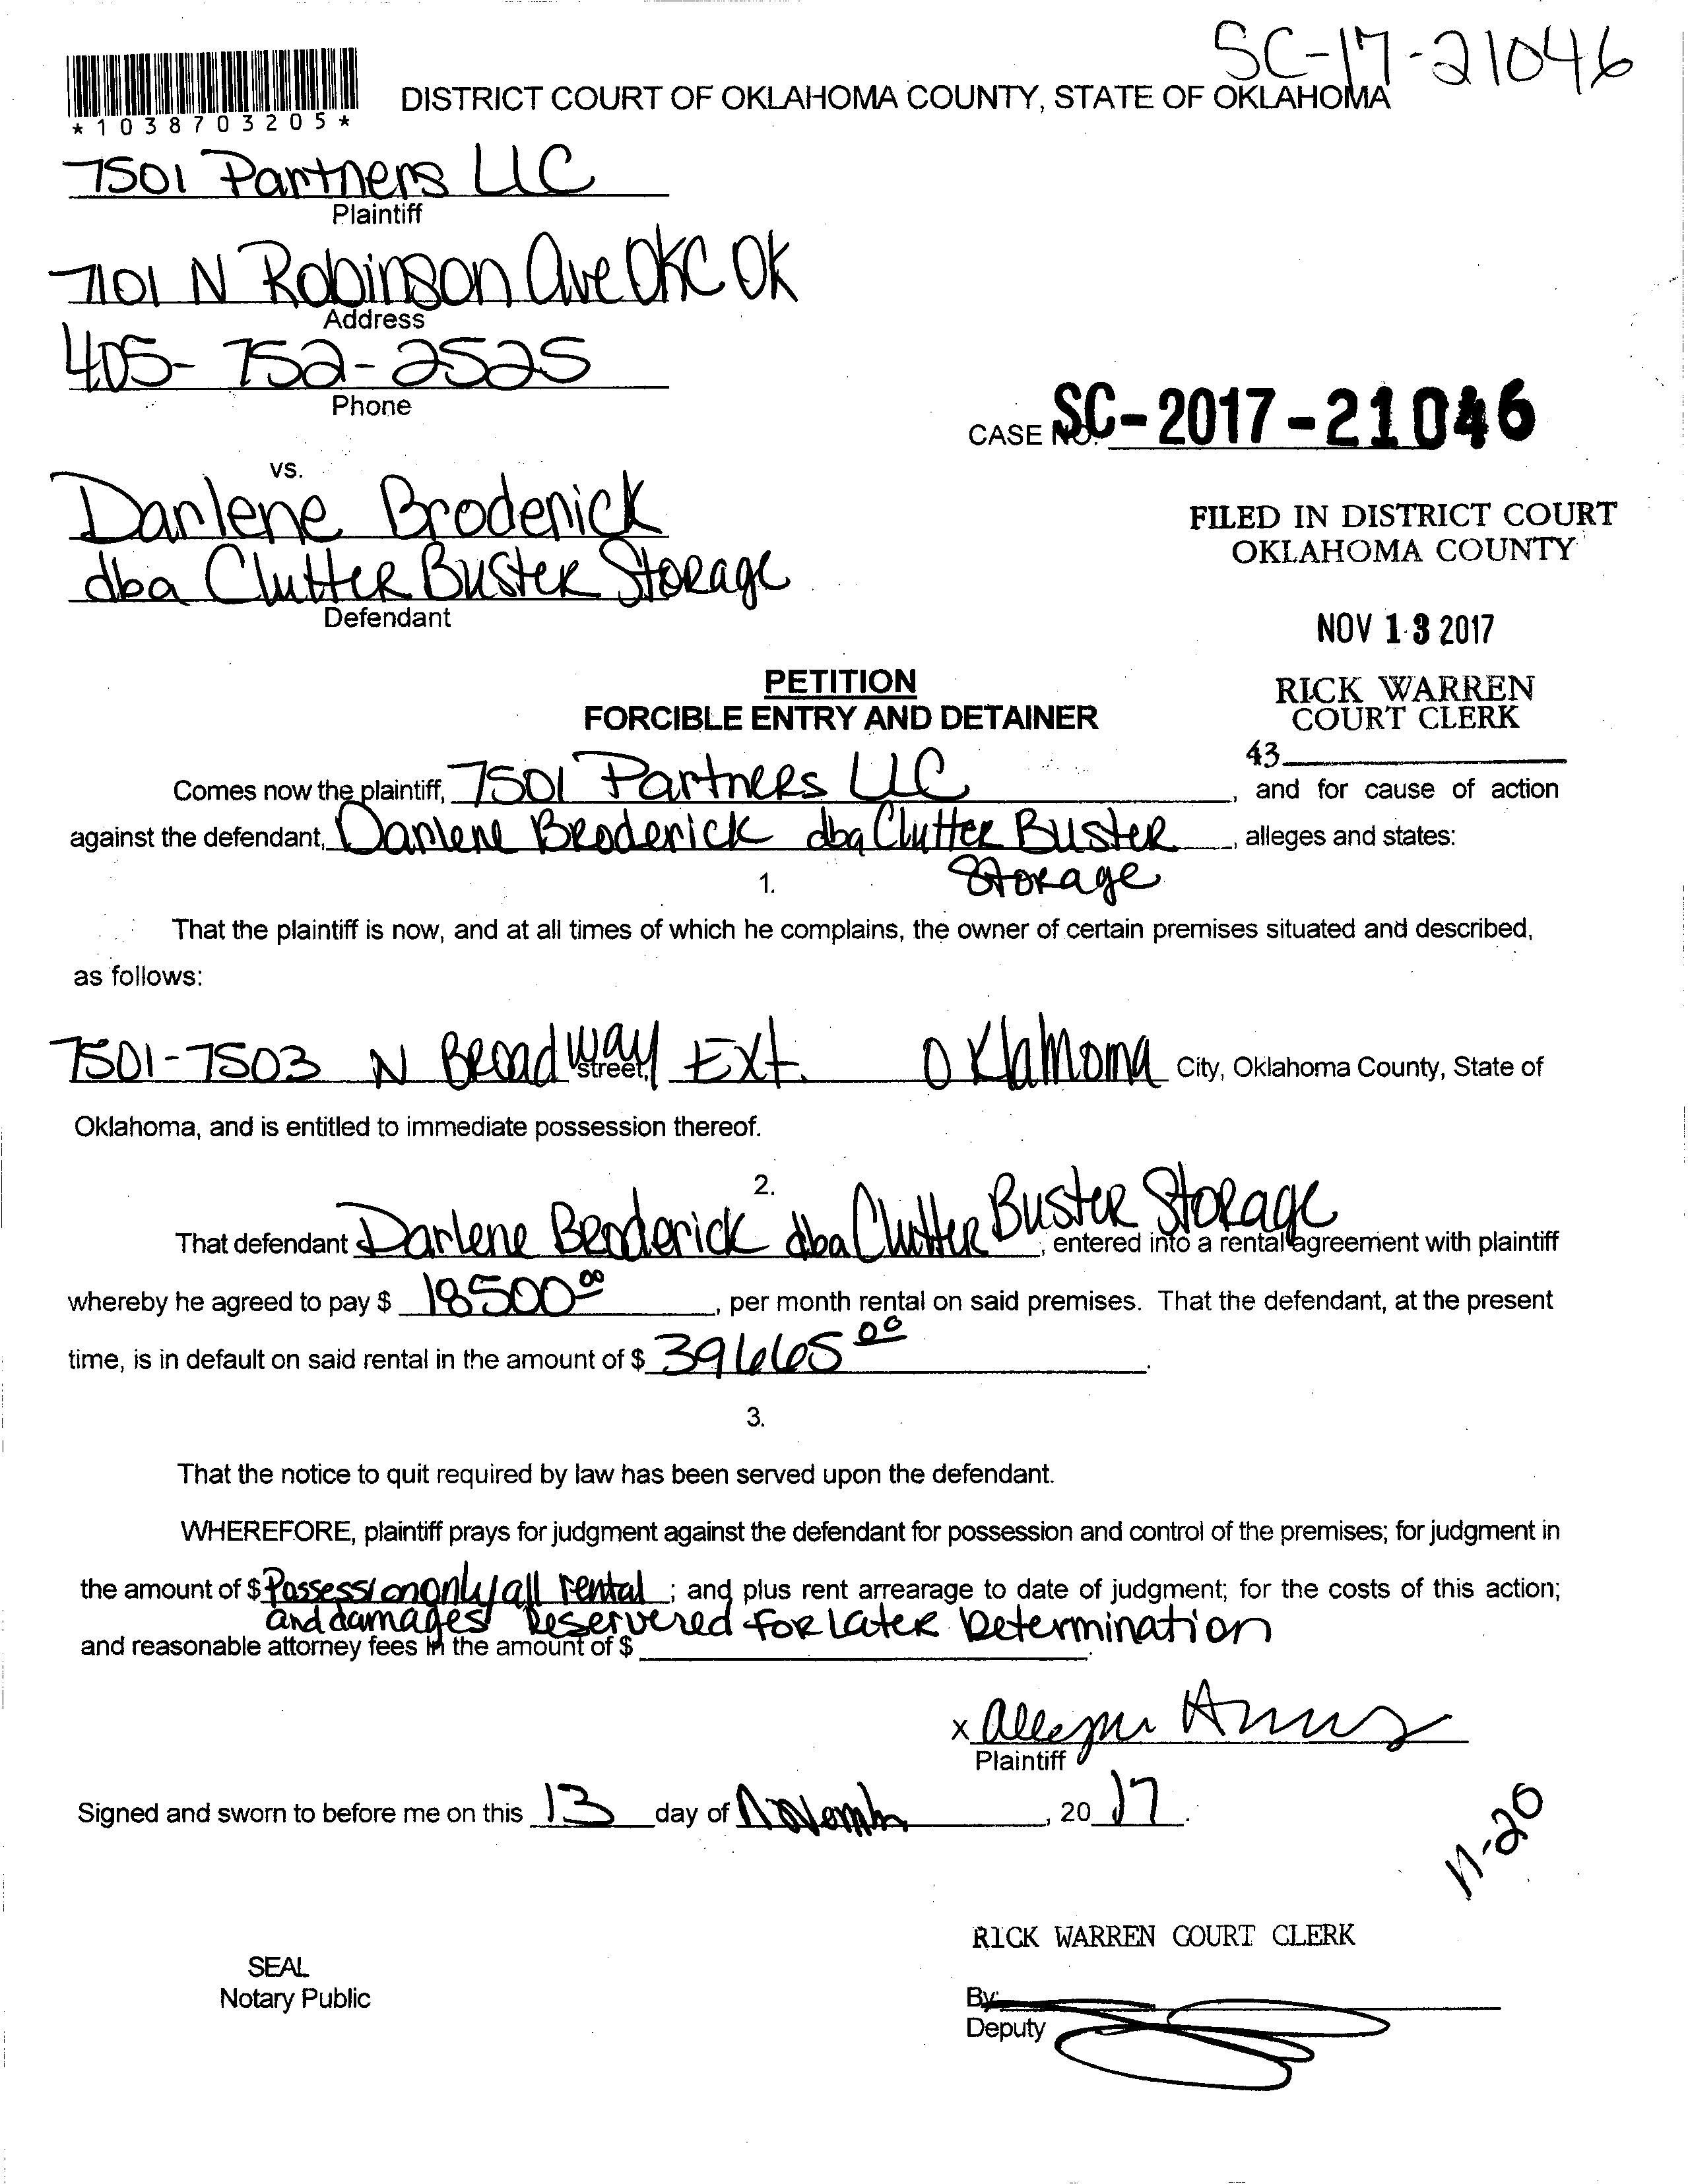 SC-17-21046
*1038703205*
DISTRICT COURT OF OKLAHOMA COUNTY, STATE OF OKLAHOMA
7501 Partners LLC
Plaintiff
7101 N Robinson Ave OKC OK
Address
405-752-2525
Phone
CASE NO. SC-2017-21046
vs.
Darlene Broderick
dba Clutter Buster Storage
Defendant
FILED IN DISTRICT COURT
OKLAHOMA COUNTY
NOV 13 2017
RICK WARREN
COURT CLERK
43
PETITION
FORCIBLE ENTRY AND DETAINER
Comes now the plaintiff, 7501 Partners LLC, and for cause of action
against the defendant, Darlene Broderick dba Clutter Buster, alleges and states:
Storage
1.
That the plaintiff is now, and at all times of which he complains, the owner of certain premises situated and described,
as follows:
7501-7503 N Broadway Ext. Oklahoma City, Oklahoma County, State of
street,
Oklahoma, and is entitled to immediate possession thereof.
2.
That defendant Darlene Broderick dba Clutter Buster Storage, entered into a rental agreement with plaintiff
whereby he agreed to pay $ 18500 00, per month rental on said premises. That the defendant, at the present
time, is in default on said rental in the amount of $ 39665 00.
3.
That the notice to quit required by law has been served upon the defendant.
WHEREFORE, plaintiff prays for judgment against the defendant for possession and control of the premises; for judgment in
the amount of $ Possession only/all rental; and plus rent arrearage to date of judgment; for the costs of this action;
and damages Reservered for later Determination
and reasonable attorney fees in the amount of $ .
x
Plaintiff
Signed and sworn to before me on this 13 day of Novemb, 20 17.
11-20
RICK WARREN COURT CLERK
SEAL
Notary Public
By:
Deputy